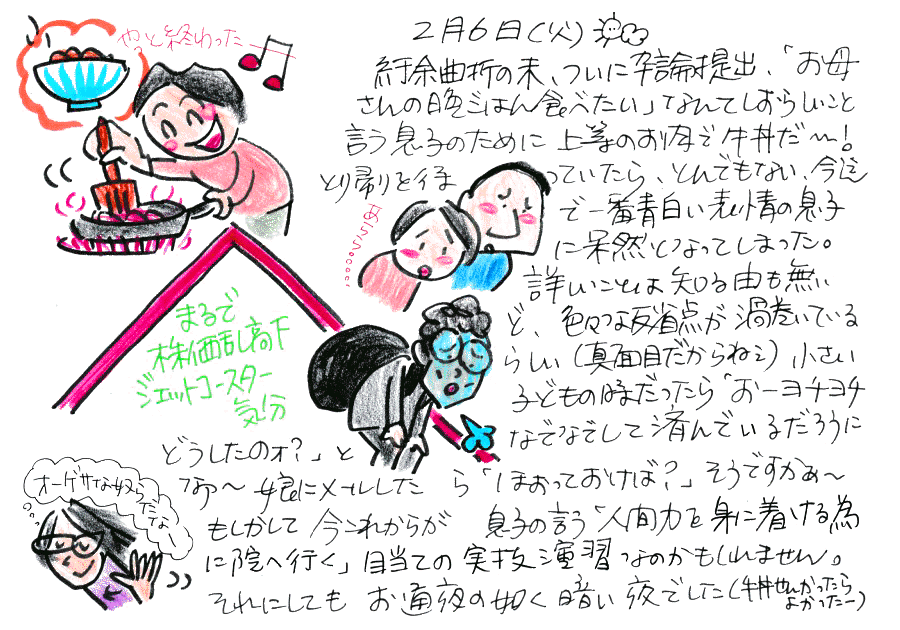 2月6日(火)
やっと終わった
紆余曲折の末、ついに卒論提出、「お母
さんの晩ごはん食べたい」なんてしおらしいこと
言う息子のために上等のお肉で牛丼だ〜!
とり帰りを待っていたら、とんでもない、今迄
で一番青白い表情の息子
に呆然となってしまった。
詳しいことは知る由も無い
ど、色々な反省点が渦巻いている
らしい(真面目だからねぇ)小さい
子どもの時だったら「おーヨチヨチ
なでなでして済んでいるだろうに
どうしたのォ?」と
なァ〜娘にメールしたら「ほおっておけば?」そうですかぁ〜
もしかして今これからが息子の言う「人間力を身に着ける為
に院へ行く」目当ての実技演習なのかもしれません。
それにしてもお通夜の如く暗い夜でした(牛丼せんかったら
よかったー)
まるで
株価乱高下
ジェットコースター
気分
オーゲサな奴らだなー